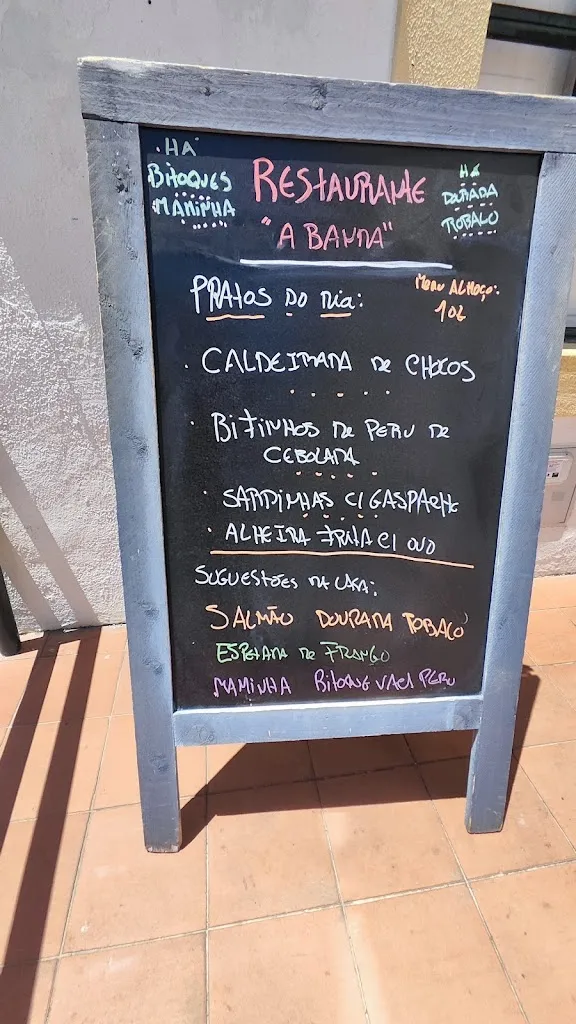 HÁ
BITOQUES
MAMINHA
RESTAURANTE
"A BANDA"
HÁ
DOURADA
ROBALO
PRATOS DO DIA:
MENU ALMOÇO:
10€
CALDEIRADA DE CHOCOS
BIFINHOS DE PERU DE
CEBOLADA
SARDINHAS C/ GASPACHO
ALHEIRA FRITA C/ OVO
SUGUESTÕES DA CASA:
SALMÃO DOURADA ROBALO
ESPETADA DE FRANGO
MAMINHA BITOQUE VACA PERU